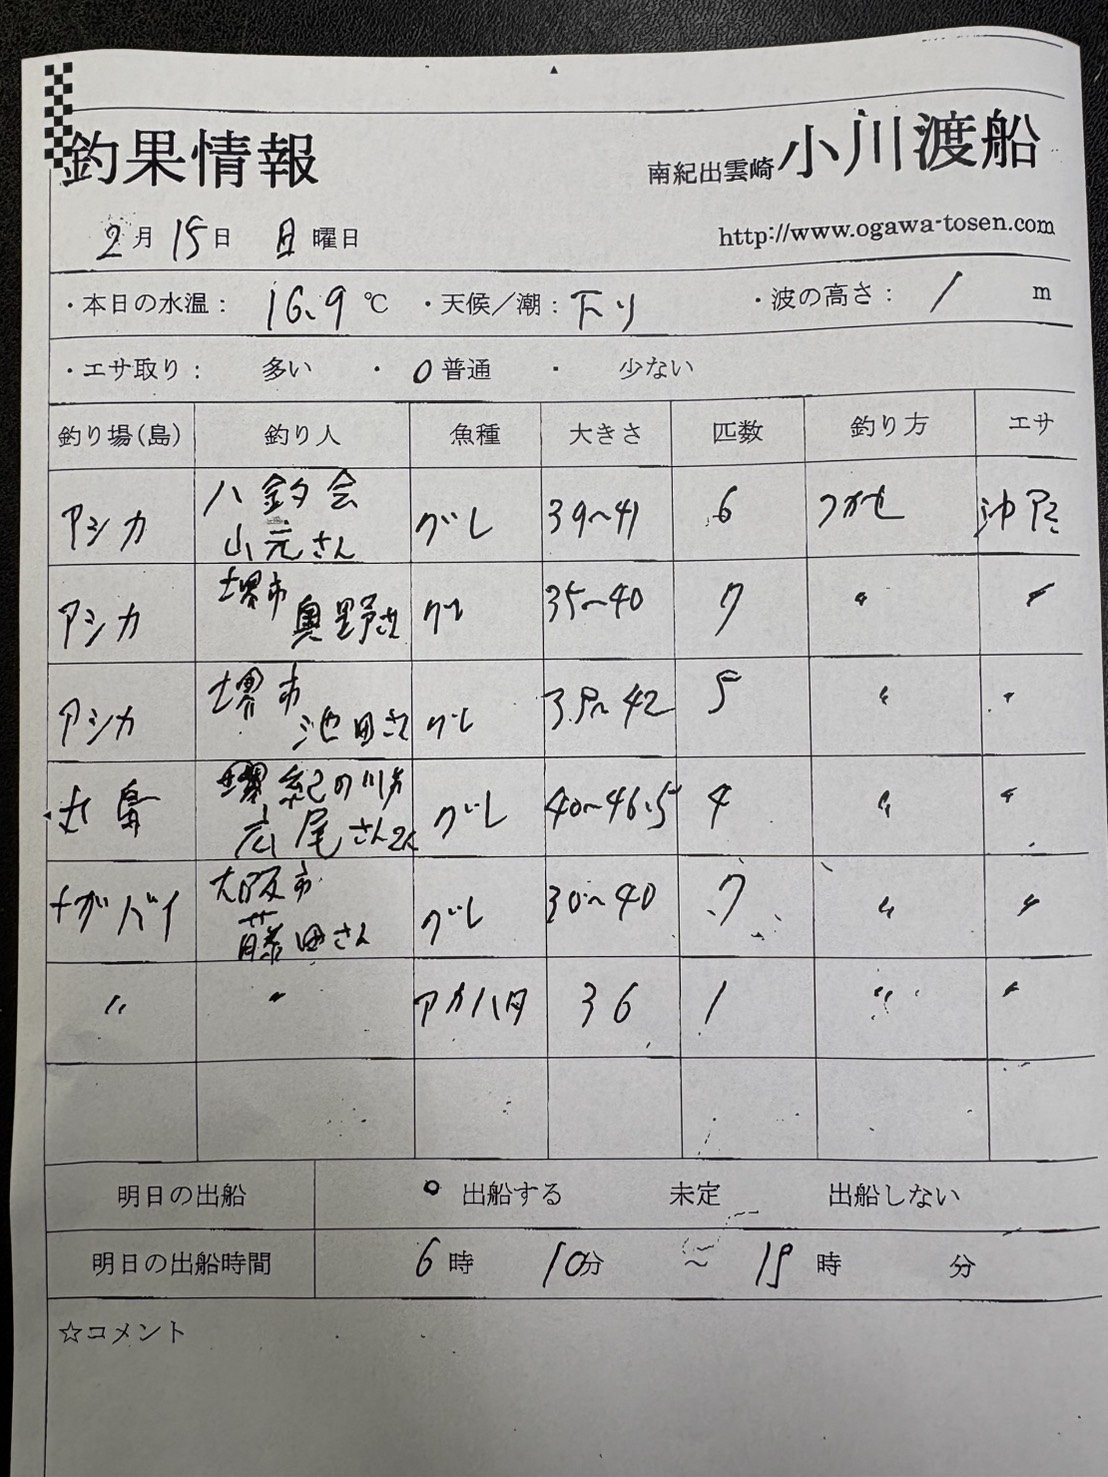 釣果情報
南紀出雲崎 小川渡船
2月15日 日曜日
http://www.ogawa-tosen.com
・本日の水温： 16.9 ℃ ・天候／潮：下り ・波の高さ： 1 m
・エサ取り： 多い ・ 0普通 ・ 少ない
釣り場(島) 釣り人 魚種 大きさ 匹数 釣り方 エサ
アシカ 八釣会 山元さん グレ 39〜41 6 フカセ 沖アミ
アシカ 堺市 奥野さん グレ 35〜40 7 〃 〃
アシカ 堺市 池田さん グレ 35〜42 5 〃 〃
丸島 紀の川市 広尾さん2人 グレ 40〜46.5 4 〃 〃
ナガバイ 大阪市 藤田さん グレ 30〜40 7 〃 〃
〃 〃 アカハタ 36 1 〃 〃
明日の出船 ○ 出船する 未定 出船しない
明日の出船時間 6時 10分 〜 15時 分
☆コメント